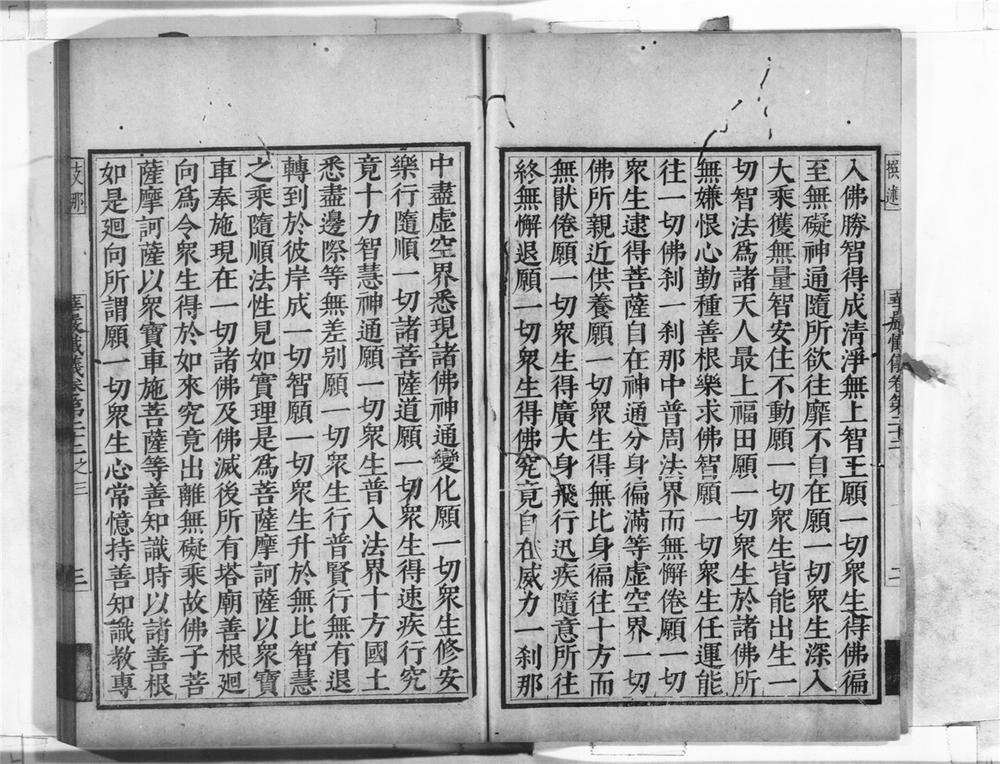 入佛勝智得成清淨無上智王願一切衆生得佛徧
至無礙神通隨所欲往靡不自在願一切衆生深入
大乘獲無量智安住不動願一切衆生皆能出生一
切智法爲諸天人最上福田願一切衆生於諸佛所
無嫌恨心勤種善根樂求佛智願一切衆生任運能
往一切佛刹一刹那中普周法界而無懈倦願一切
衆生逮得菩薩自在神通分身徧滿等虛空界一切
佛所親近供養願一切衆生得無比身徧往十方而
無猒倦願一切衆生得廣大身飛行迅疾隨意所往
終無懈退願一切衆生得佛究竟自在威力一刹那
中盡虛空界悉現諸佛神通變化願一切衆生修安
樂行隨順一切諸菩薩道願一切衆生得速疾行究
竟十力智慧神通願一切衆生普入法界十方國土
悉盡邊際等無差别願一切衆生行普賢行無有退
轉到於彼岸成一切智願一切衆生升於無比智慧
之乘隨順法性見如實理是爲菩薩摩訶薩以衆寶
車奉施現在一切諸佛及佛滅後所有塔廟善根廻
向爲令衆生得於如來究竟出離無礙乘故佛子菩
薩摩訶薩以衆寶車施菩薩等善知識時以諸善根
如是廻向所謂願一切衆生心常憶持善知識教專
三